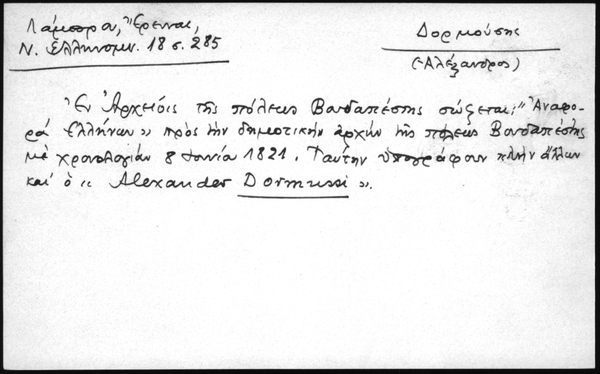 Λάμπρου, Ἔρευναι,
Ν. Ἑλληνομν. 18 σ. 285
Δορμούσης
(Ἀλέξανδρος)
Ἐν Ἀρχείοις τῆς πόλεως Βουδαπέστης σώζεται „Ἀναφο-
ρά Ἑλλήνων» πρὸς τὴν δημοτικὴν ἀρχὴν τῆς πόλεως Βουδαπέστης
μὲ χρονολογίαν 8 Ἰουνία 1821. Ταύτην ὑπογράφουν πλὴν ἄλλων
καὶ ὁ « Alexander Dormussi ».